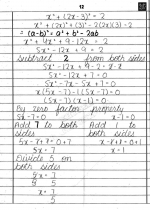 12
x² + (2x-3)² = 2
x² + (2x)² + (3)² - 2(2x)(3) = 2
∵ (a-b)² = a² + b² - 2ab
x² + 4x² + 9 - 12x = 2
5x² - 12x + 9 = 2
Subtract 2 from both sides
5x² - 12x + 9 - 2 = 2 - 2
5x² - 12x + 7 = 0
5x² - 7x - 5x + 7 = 0
x(5x - 7) - 1(5x - 7) = 0
(5x - 7)(x - 1) = 0
By zero factor property
5x - 7 = 0 x - 1 = 0
Add 7 to both Add 1 to
sides both sides
5x - 7 + 7 = 0 + 7 x - 1 + 1 = 0 + 1
5x = 7 x = 1
Divide 5 on
both sides
5x = 7
5 5
x = 7
5